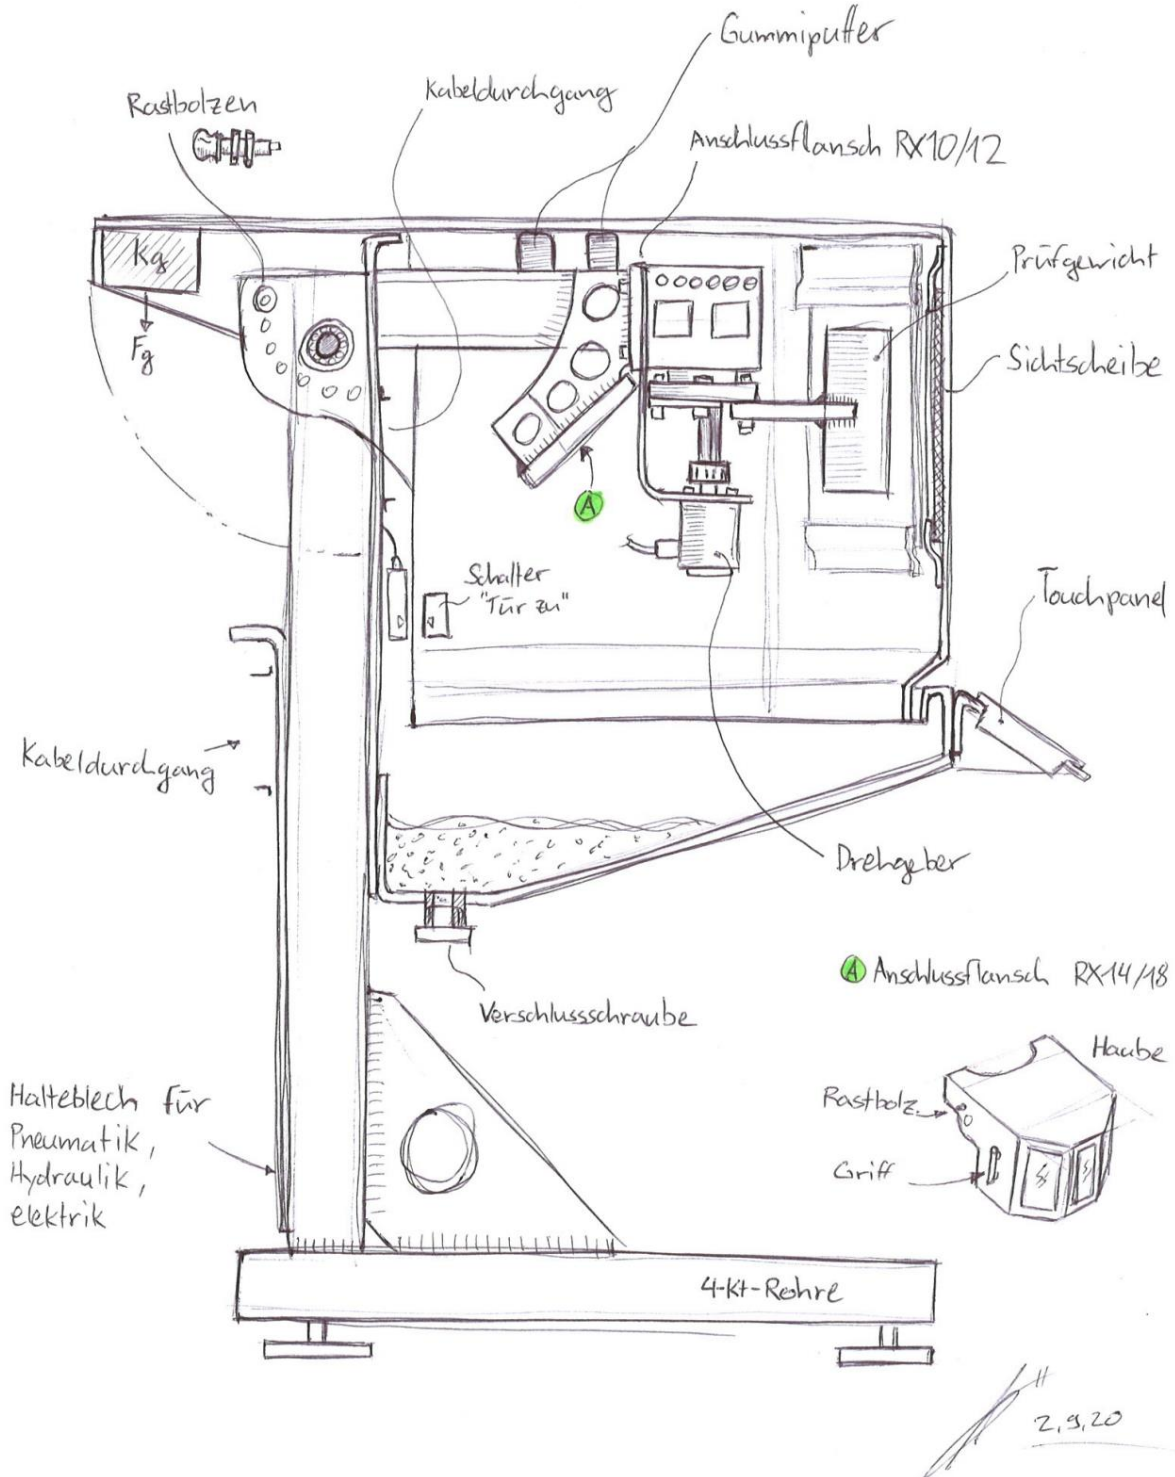 Gummipuffer
Kabeldurchgang
Rastbolzen
Anschlussflansch RX10/12
Kg
Fg
Prüfgewicht
Sichtscheibe
A
Schalter
"Tür zu"
Touchpanel
Kabeldurchgang
Drehgeber
A Anschlussflansch RX14/18
Verschlussschraube
Haube
Rastbolz.
Griff
Halteblech für
Pneumatik,
Hydraulik,
elektrik
4-Kt-Rohre
2.9.20